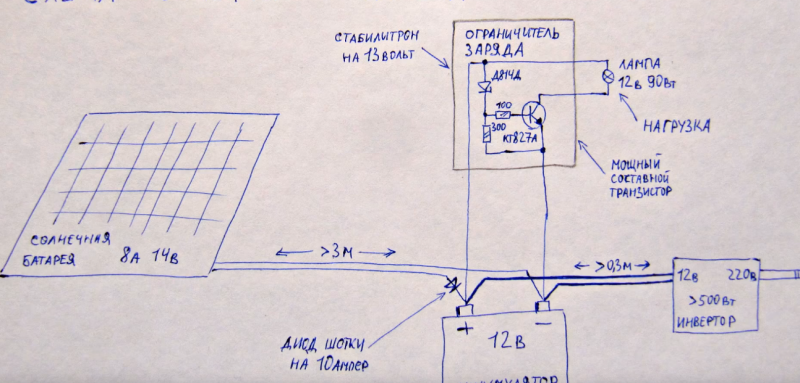 СТАБИЛИТРОН
НА 13 ВОЛЬТ
ОГРАНИЧИТЕЛЬ
ЗАРЯДА
Д814Д
100
300
КТ827А
ЛАМПА
12В 90ВТ
НАГРУЗКА
МОЩНЫЙ
СОСТАВНОЙ
ТРАНЗИСТОР
СОЛНЕЧНАЯ
БАТАРЕЯ 8А 14В
>3М
>0,3М
12В 220В
>500ВТ
ИНВЕРТОР
ДИОД ШОТКИ
НА 10АМПЕР
+ −
12В